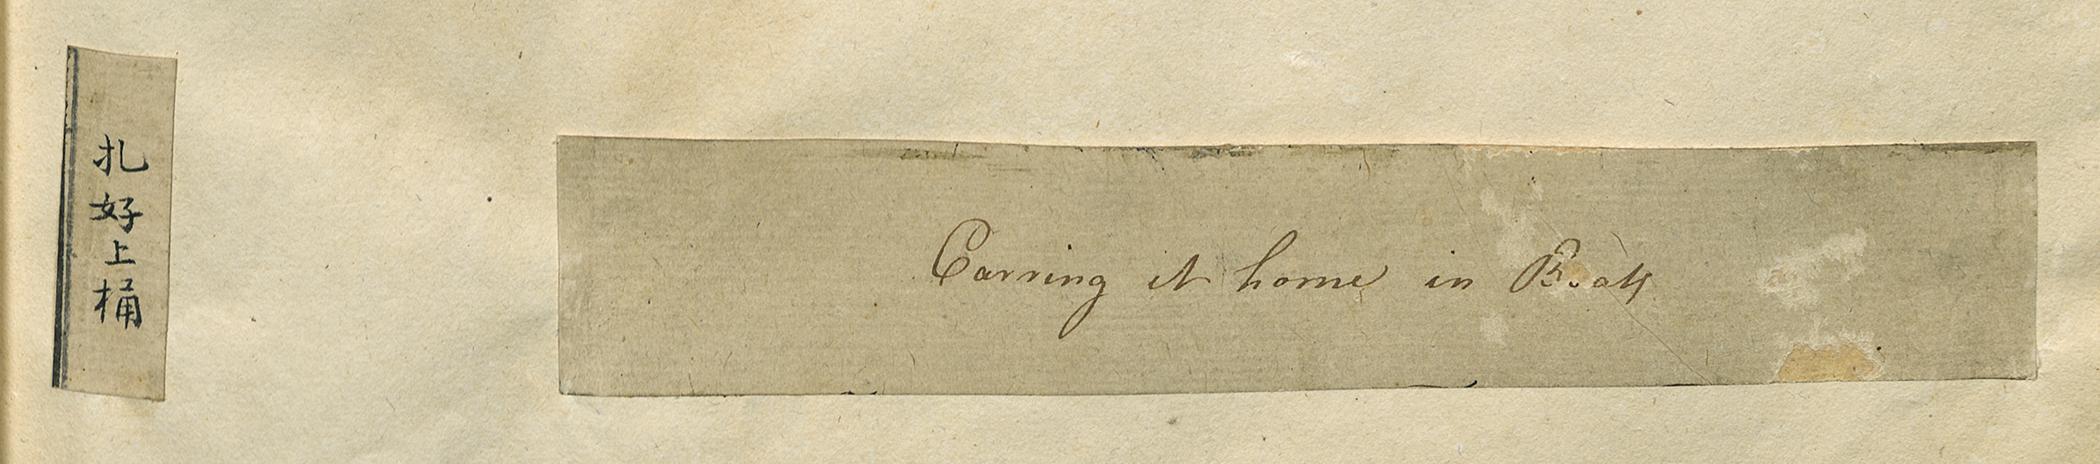 扎好上桶
Carring it home in Boats